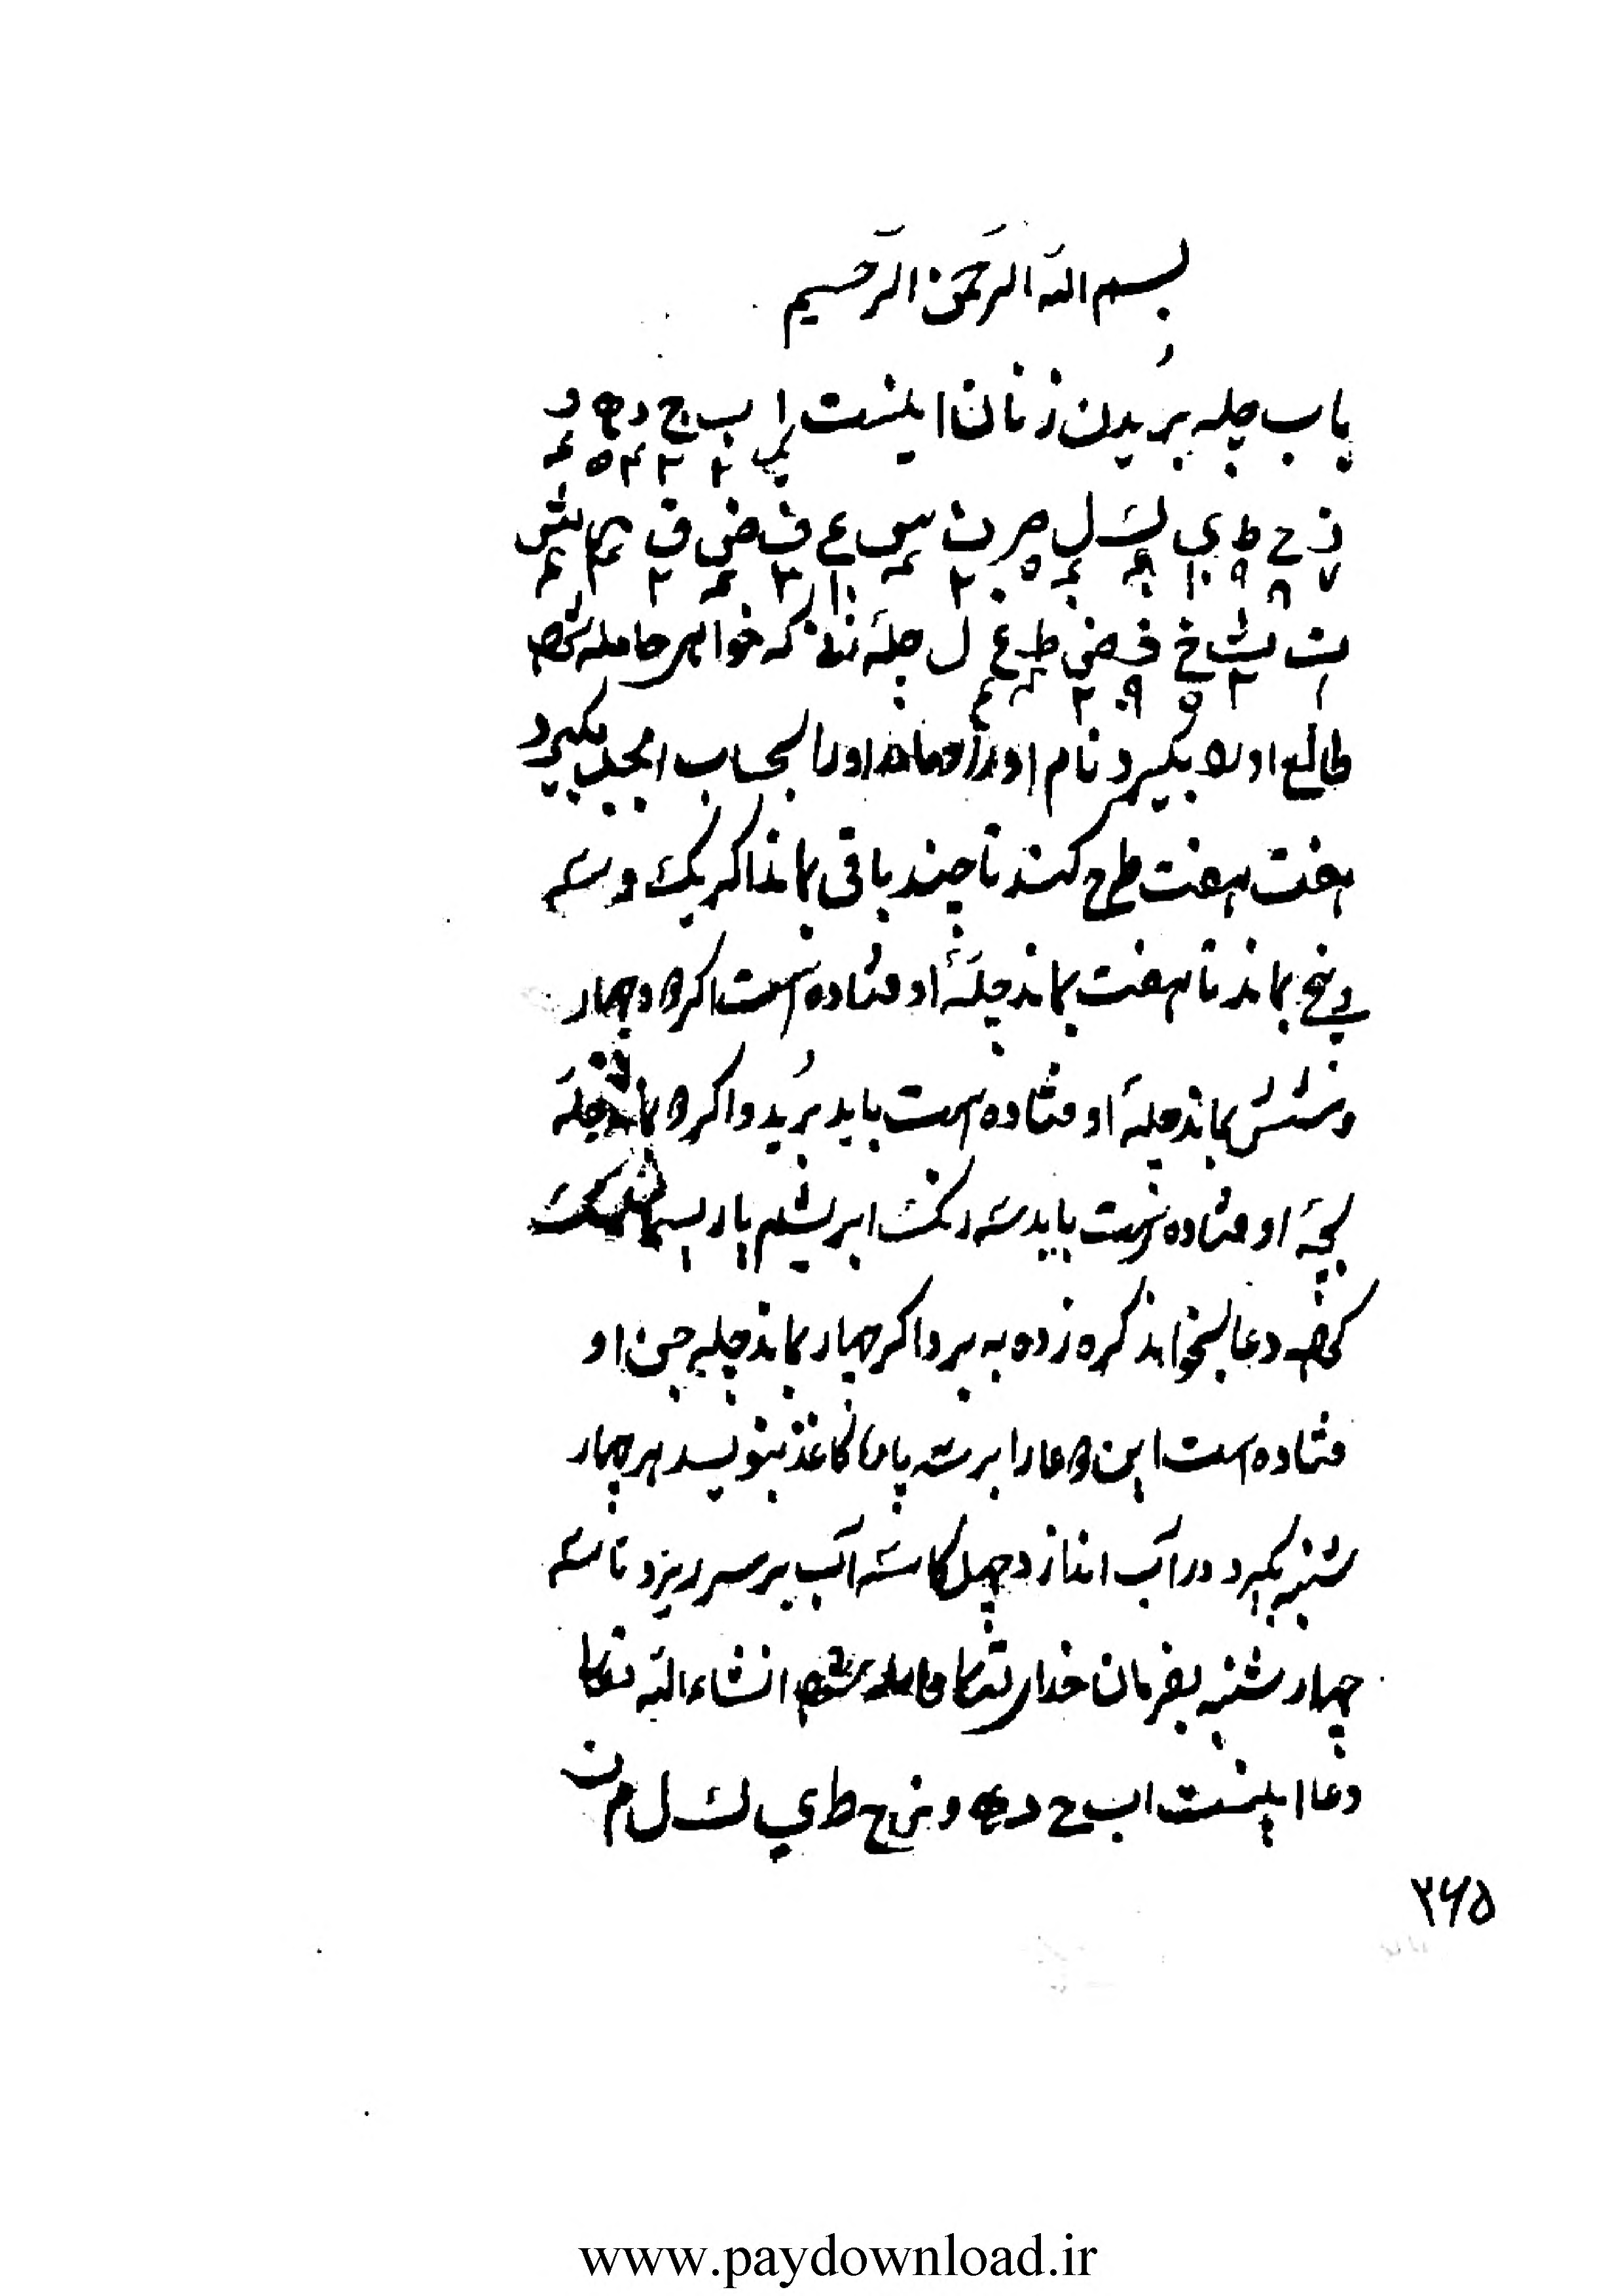 بسم الله الرحمن الرحیم
باب چله بریدن زنان اینست ا ب ج د ه و
۱ ۲ ۳ ۴ ۵ ۶
ز ح ط ي ك ل م ن س ع ف ض ق ر ش
۷ ۸ ۹ ۱۰
ت ث خ ذ ض ظ غ ل چلهٔ که خواهد حامله شود
طالع او را بگیرد نام او و مادر او را بحساب ابجد بگیرد
هفت هفت طرح کند تا چند باقی بماند اگر یک و سه
و پنج بماند تا هفت بماند چلهٔ او فتاده نیست اگر دو چهار
و شش بماند چلهٔ او فتاده است باید برید و اگر دو بماند چلهٔ
بچهٔ او فتاده است باید سه رنگ ابریشم یا ریسمان
کند دعا بخواند گره زده به برد اگر چهار بماند چلهٔ جن او
فتاده است این دعا را بر سه پاره کاغذ بنویسد هر چهار
شنبه بگیرد در آب اندازد چهل کاسه آب بر سر ریزد تا سه
چهار شنبه بفرمان خدای تعالی حامله شود انشاءالله تعالی
دعا اینست ا ب ج د ه و ز ح ط ي ك ل م ن
۲۶۵
www.paydownload.ir